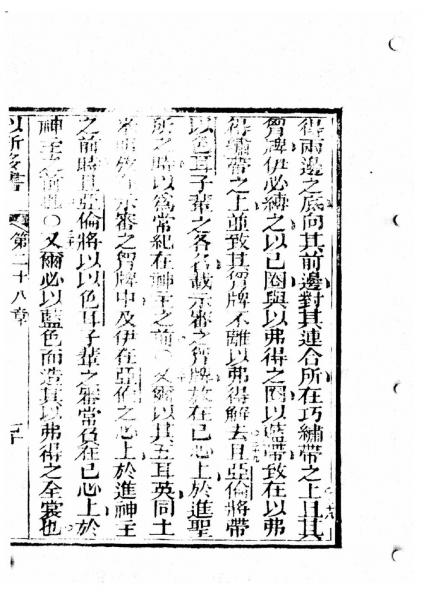 得兩邊之底向其前邊對其連合所在巧繡帶之上且其
胷牌伊必縛之以已圈與以弗得之圈以藍帶致在以弗
得繡帶之上並致其胷牌不離以弗得解去且亞倫將帶
以色耳子輩之各名載示審之胷牌放在已心上於進聖
所之時以爲常紀在神主之前○又爾以其五耳英同土
示審之胷牌中及伊在亞倫之心上於進神主
之前時且亞倫將以以色耳子輩之審常負在已心上於
神主之前也○又爾必以藍色而造其以弗得之全裳也
第二十八章